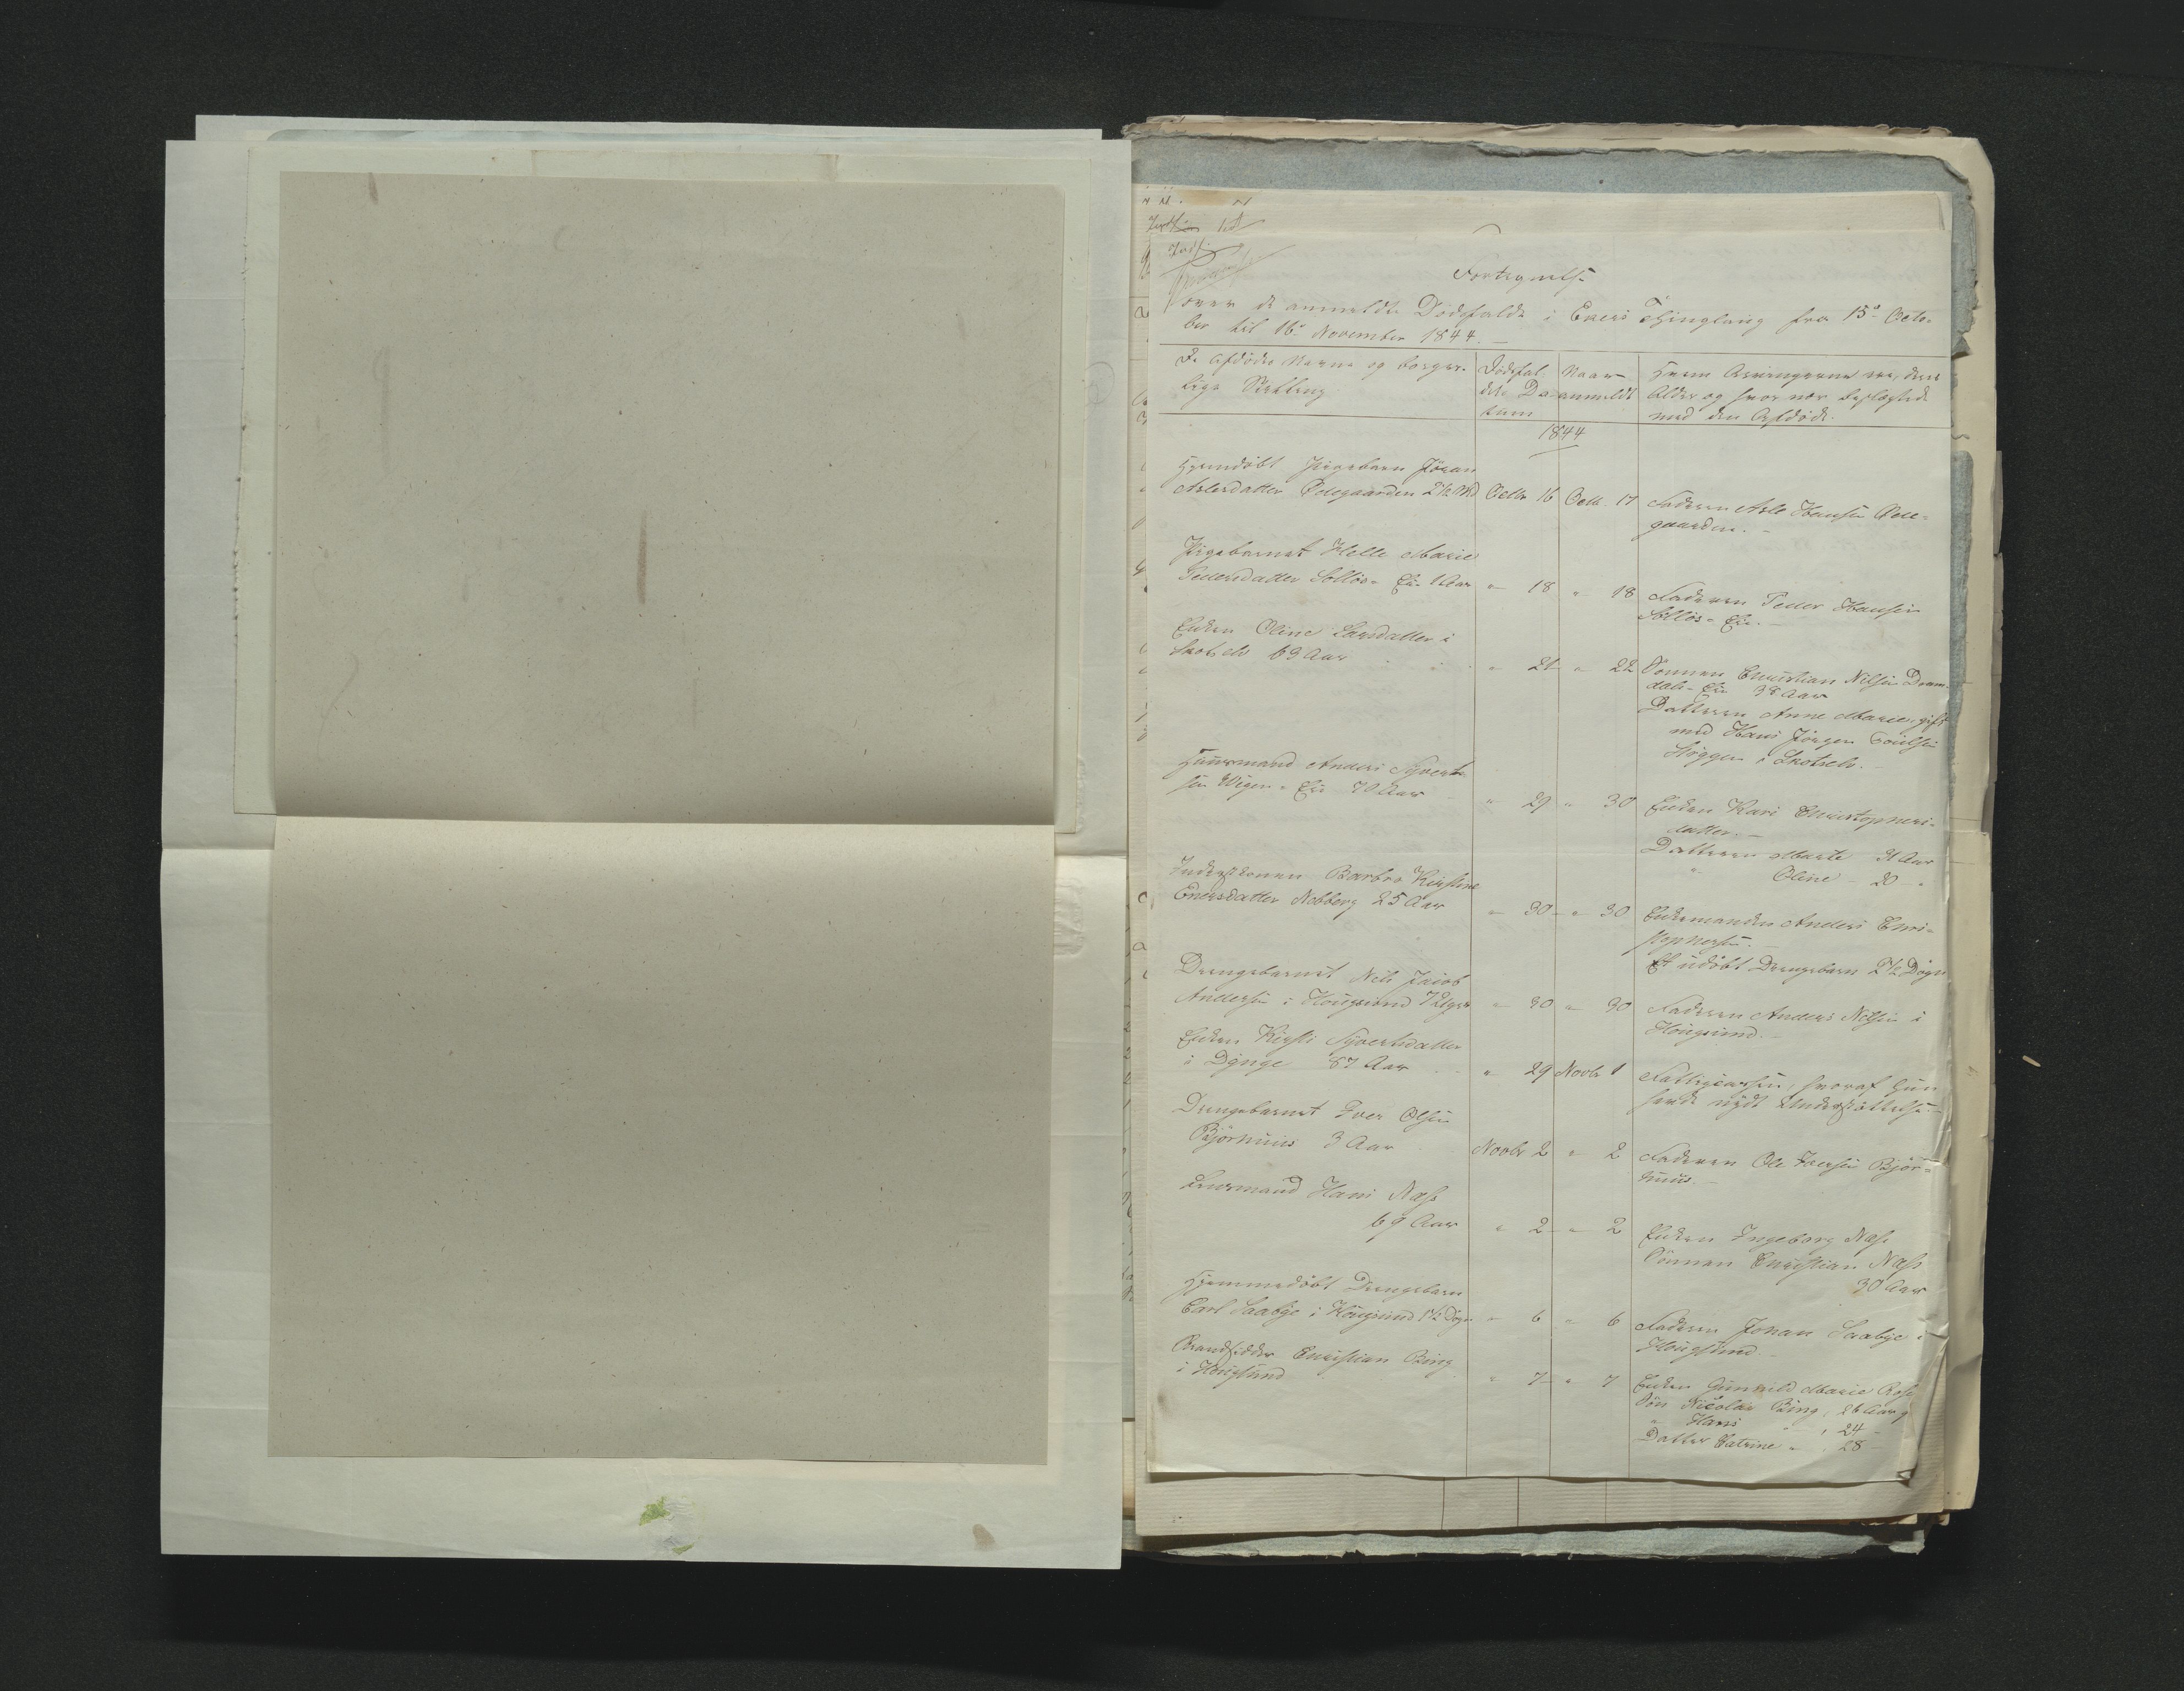 Fortegnelse
over de anmeldte Dødsfalde i Egers Thinglaug fra 15de Octo-
ber til 16de November 1844.
De Afdødes Navne og borger-
lige Stilling
Dødsfal-
dets Da-
tum
Naar
anmeldt
Hvem Arvingerne ere, deres
Alder og hvor nær beslægtede
med den Afdøde.
1844
Hjemdøbt Pigebarn Jöran
Aslesdatter Ödegaarden 2½ Md Octbr 16 Octb. 17 Faderen Asle Hansen Öde-
gaarden.
Pigebarnet Helle Marie
Pedersdatter Sollös-Eie 1 Aar " 18 " 18 Faderen Peder Hansen
Söllös-Eie.
Enken Oline Larsdatter i
Skotselv 69 Aar " 21 " 22 Sönnen Christian Nilsen Dram-
dals-Eie 38 Aar
Datteren Anne Marie, gift
med Hans Jörgen
i Skotselv.
Huusmand Anders Syvert-
sen Wigers-Eie 70 Aar " 29 " 30 Enken Kari Christophers-
datter.
Datteren Marte 31 Aar
" Oline - 20 - "
Inderstkonen Barbro Kirstine
Enersdatter Nebberg 25 Aar " 30 " 30 Enkemanden Anders Chri-
stophersen.
Et udöbt Drengebarn 2½ Dögn
Drengebarnet Nils Jacob
Andersen i Hougsund 7 Uger " 30 " 30 Faderen Anders Nilsen i
Hougsund.
Enken Kirsti Syvertsdatter
i Dynge 87 Aar " 29 Novbr 1 Fattigcassen, hvoraf hun
havde nydt Understöttelse.
Drengebarnet Iver Olsen
Björnhuus 3 Aar Novbr 2 " 2 Faderen Ole Iversen Björn-
huus.
Leuermand Hans Næss
69 Aar " 2 " 2 Enken Ingeborg Næss
Sönnen Christian Næss
30 Aar
Hjemmedöbt Drengebarn
Carl Saabye i Hougsund 1½ Dögn " 6 " 6 Faderen Johan Saabye i
Hougsund.
Strandsidder Christian Bing
i Hougsund " 7 " 7 Enken Gunhild Marie Ross
Sön Nicolai Bing, 26 Aar g
" Hans " , 24 -
Datter Catrine " , 28 -